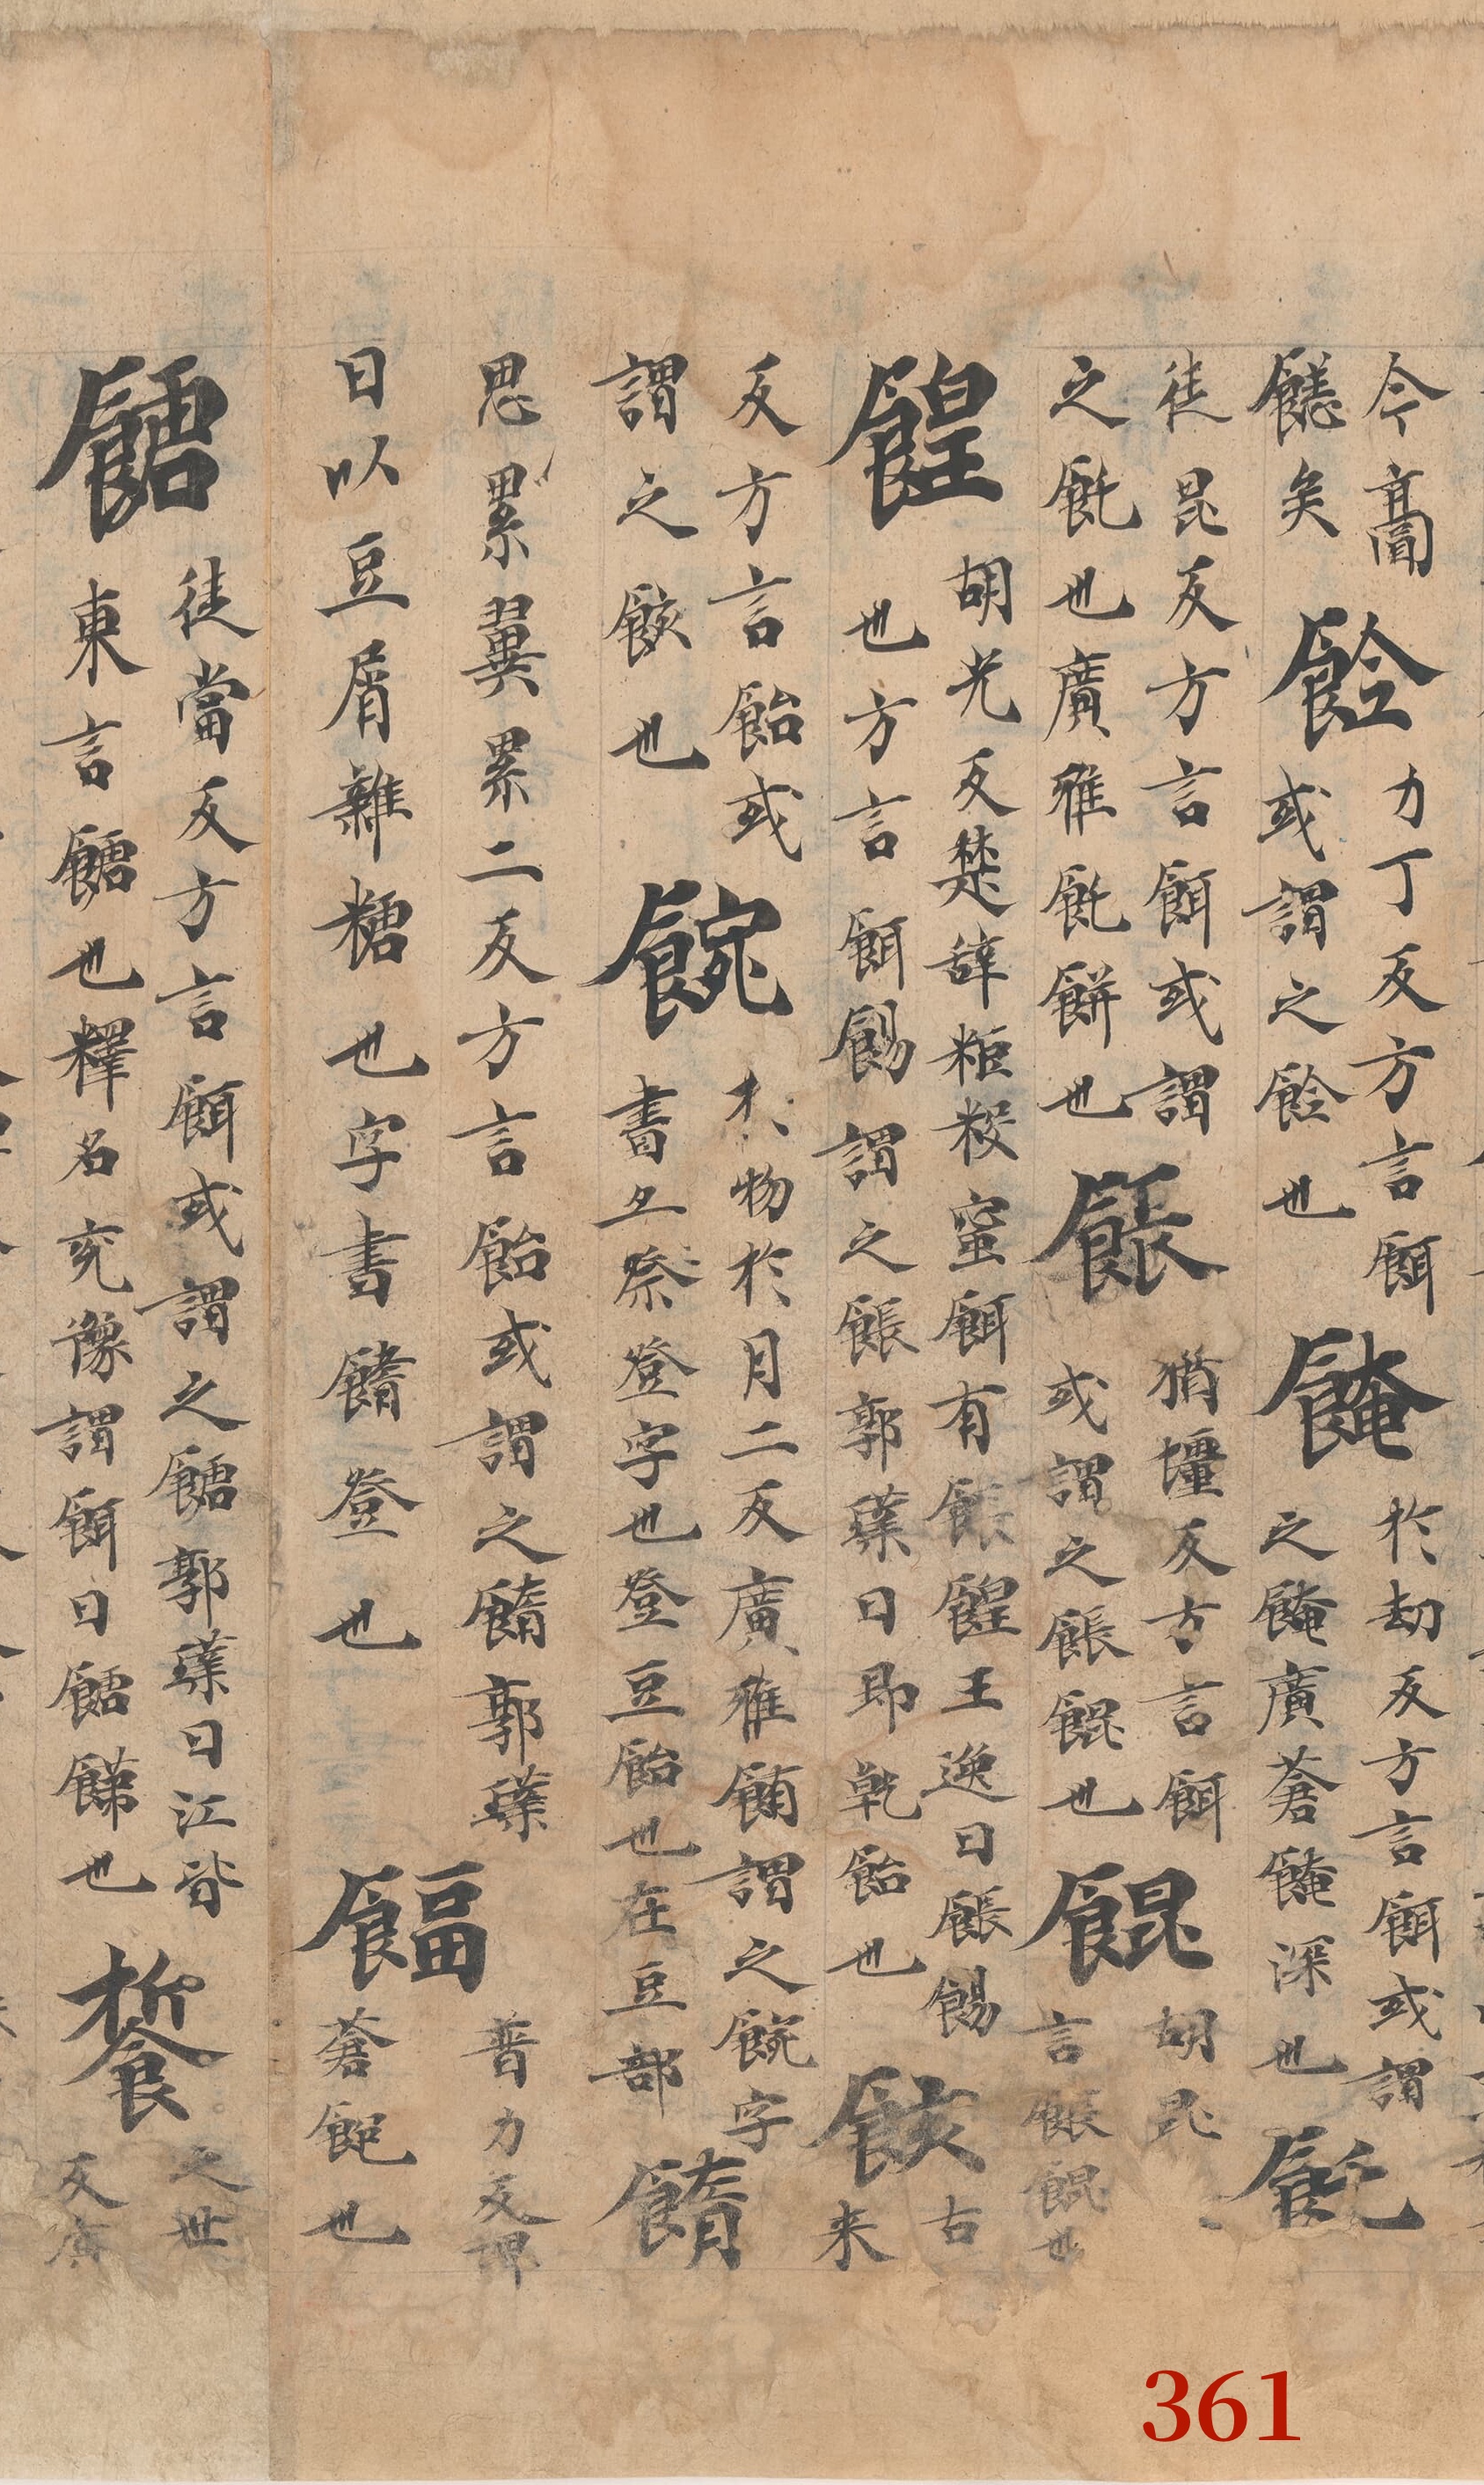 今高
餻矣
𩚹
力丁反方言餌
或謂之𩚹也
餣
於劫反方言餌或謂
之餣廣蒼餣深也
飩
徒昆反方言餌或謂
之飩也廣雅飩餅也
餦
猪壃反方言餌
或謂之餦餛也
餛
胡昆
言餦餛也
餭
胡光反楚辞粔籹蜜餌有餦餭王逸曰餦餳
也方言餌餳謂之餦郭璞曰即乾飴也
䬵
古
来
反方言飴或
謂之䬵也
䬾
物於月二反廣雅餔謂之䬾字
書亦祭登字也登豆飴也在豆部
䭉
思累翼累二反方言飴或謂之䭉郭璞
曰以豆屑雜糖也字書䭉登也
普力反埤
蒼飽也
餹
徒當反方言餌或謂之餹郭璞曰江皆
東言餹也釋名兖豫謂餌曰餹也
之世
反廣
361